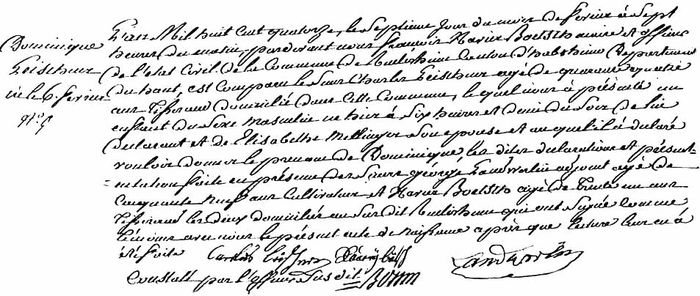 Dominique
né le 6 fevrier
N° 5
L'an Mil huit Cent quatorze, le Septieme Jour du mois de fevrier à Sept
heures du matin, pardevant nous francois Xavier Boetsch maire et officier
de l'etat Civil de la Commune de Canton d'habsheim Departement
du haut, est Comparu le Sieur Charles agé de quarante quatre
ans Tisserand domicilié dans Cette Commune, lequel nous a présenté un
enfant du Sexe Masculin né hier à Six heures et demi du Soir de lui
declarant et de Elisabethe Son epouse et auquel il a declaré
vouloir donner le prenom de Dominique, les dites declaration et présen
tation faite en présence des Sieurs George adjoint agé de
Cinquante Neuf ans Cultivateur et Xavier Boetsch agé de Trente un ans
Tisserand les deux domiciliés au Sus dit qui ont Signé Comme
témoins avec nous le présent acte de Naissance après que lecture leur en a
été faite
Constaté par l'officier Susdit